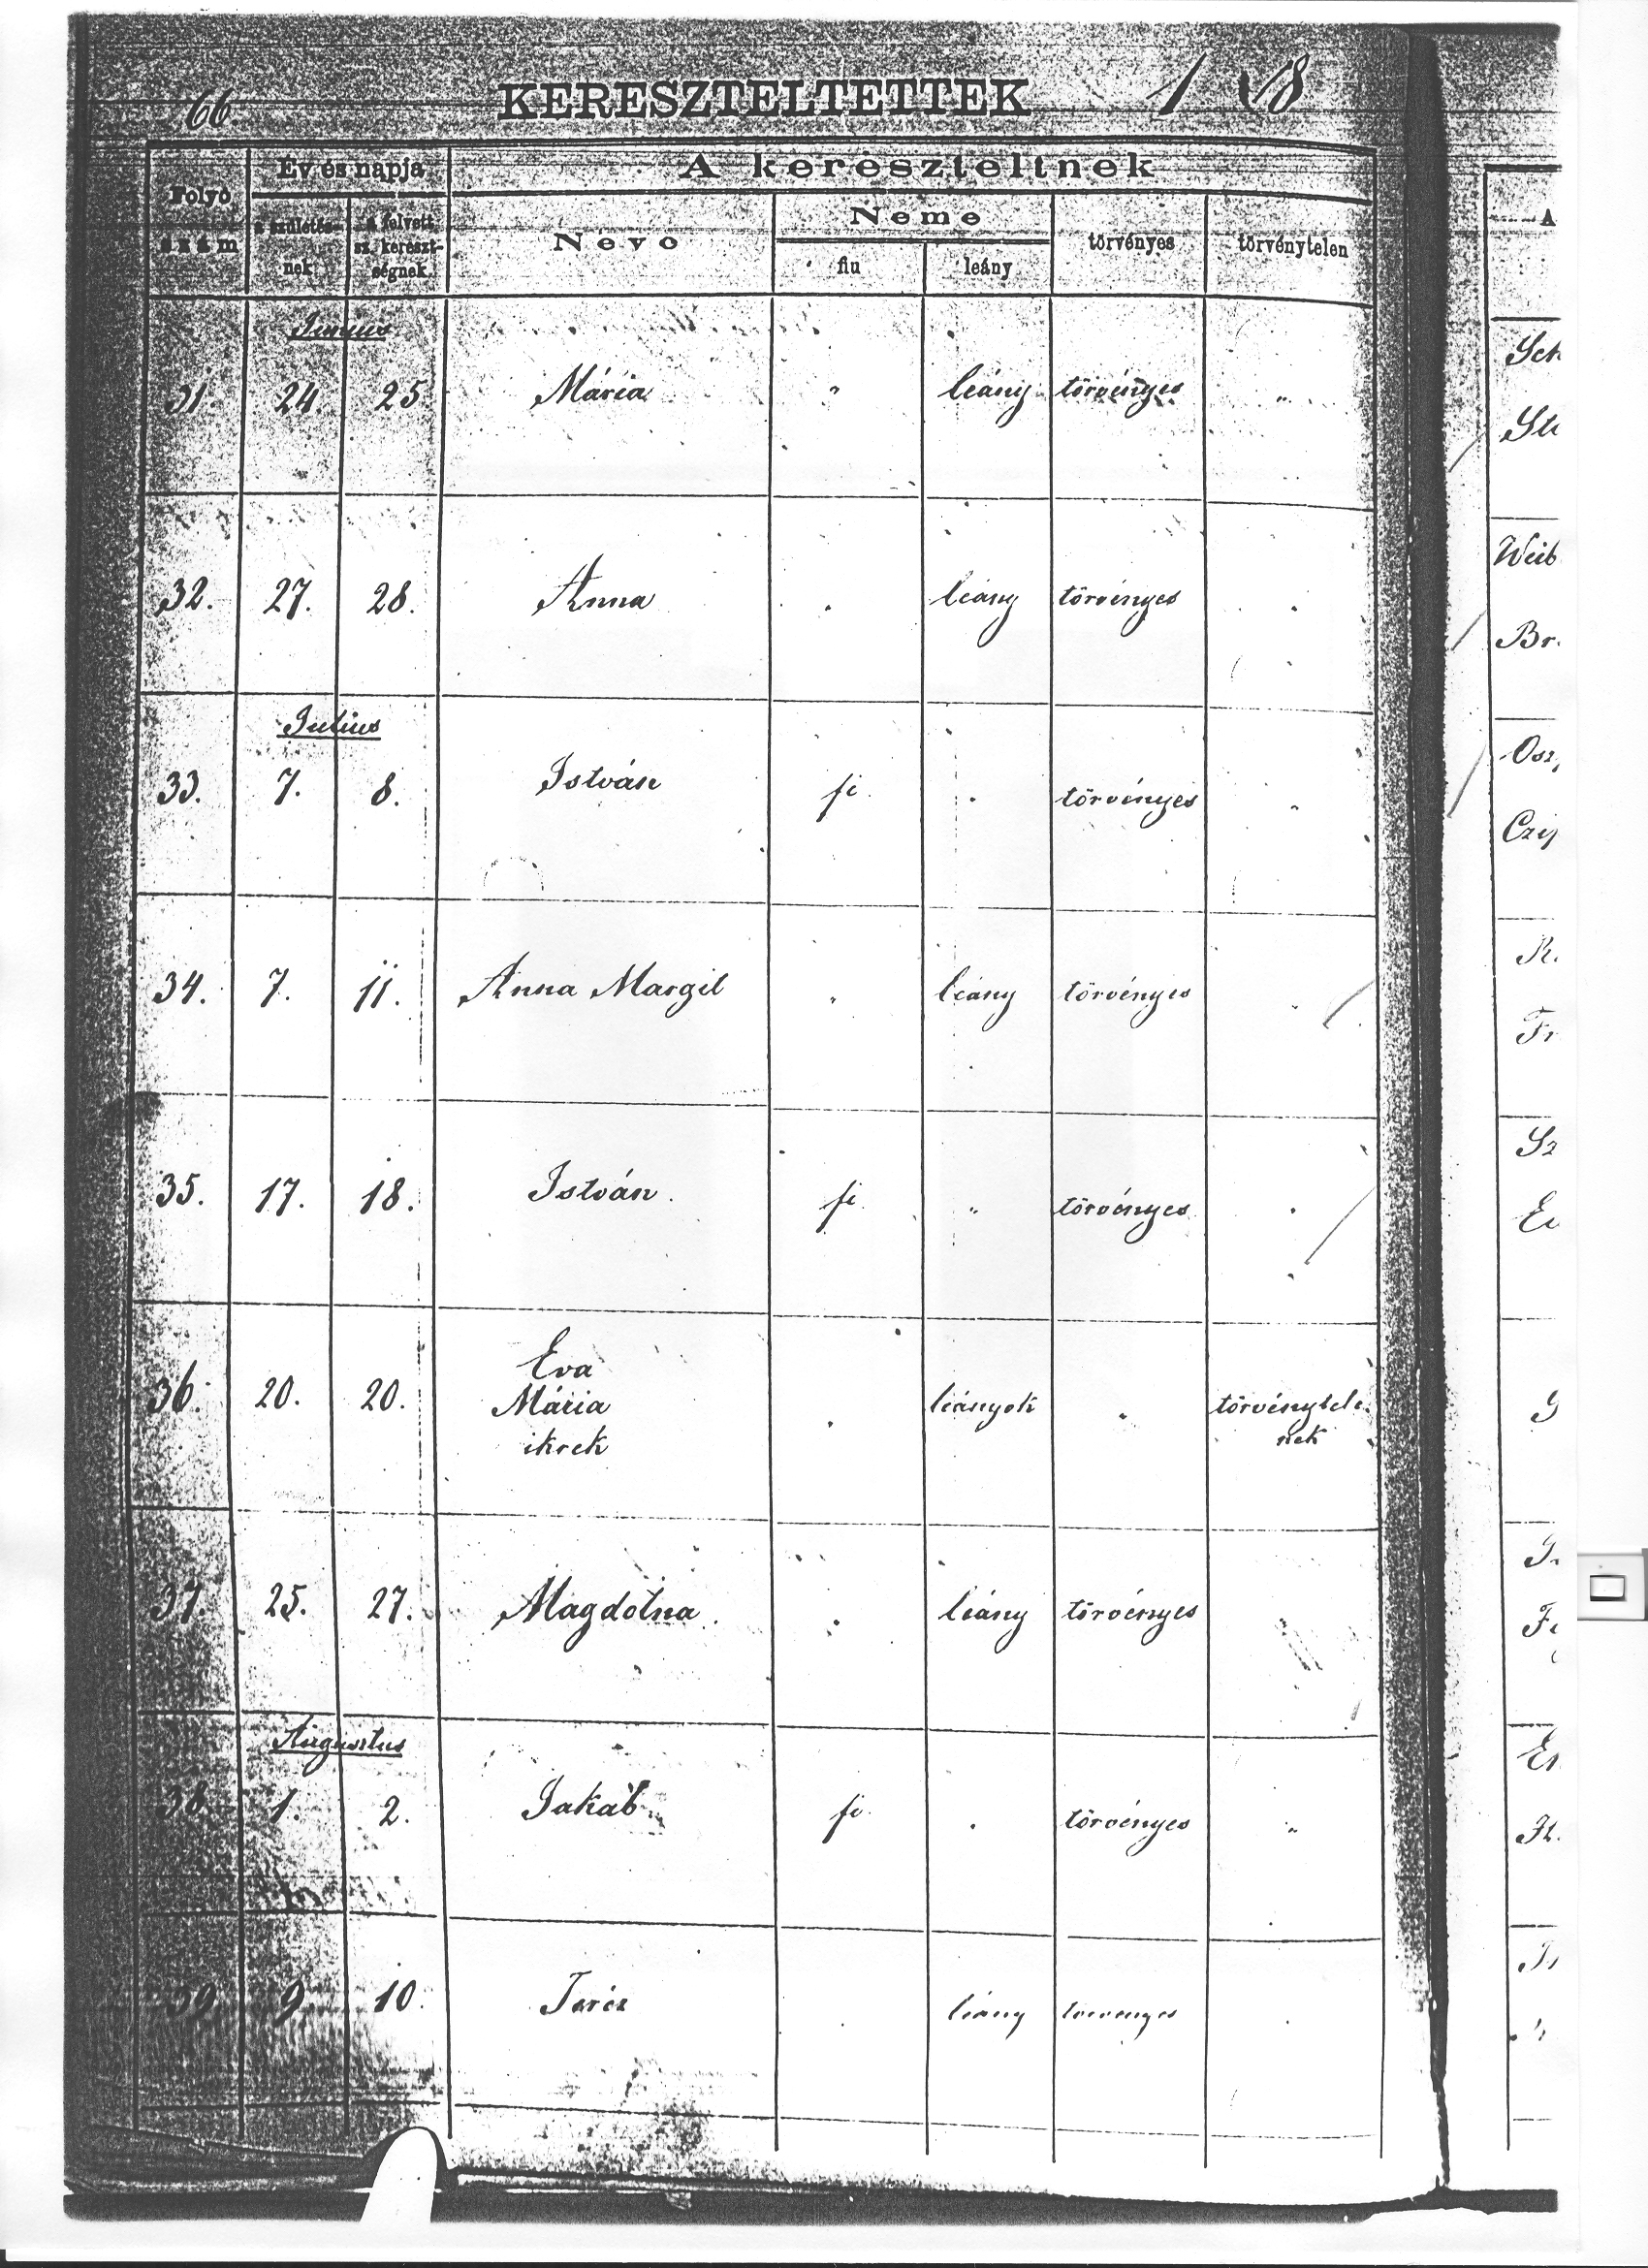 66 KERESZTELTETTEK 1
Folyó szám
Év és napja
a születés-nek
a felvett sz. kereszt-ségnek
A kereszteltnek
Neve
Neme
fiu
leány
törvényes
törvénytelen
A
Junius
31 24 25 Mária " leány törvényes "
32. 27. 28. Anna . leány törvényes .
Julius
33. 7. 8. István fi . törvényes "
34. 7. 11. Anna Margit " leány törvényes
35. 17. 18. István. fi " törvényes .
Éva
36. 20. 20. Mária . leányok " törvénytele
ikrek nek
37. 25. 27. Magdolna . leány törvényes
Augusztus
38 1. 2. Jakab fi . törvényes "
39 9 10. Teréz leány törvényes .
Sch
Weib
Br.
Osz
R.
Fr
Sz